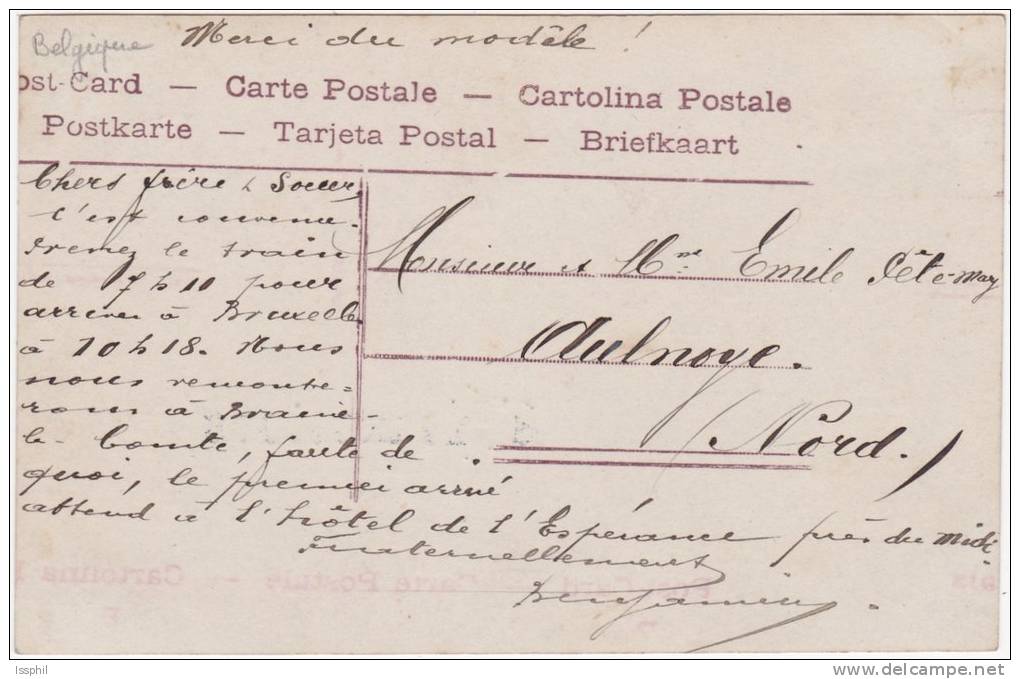 Belgique
Merci du modèle !
ost-Card — Carte Postale — Cartolina Postale
Postkarte — Tarjeta Postal — Briefkaart
Chers frère & Soeur,
c'est convenu.
Prenez le train
de 7 h 10 pour
arriver à Bruxelles
à 10 h 18. Nous
nous rencontre=
rons à Braine-
le-Comte, faute de
quoi, le premier arrivé
attend à l'hôtel de l'Espérance près du Midi.
Fraternellement
Benjamin
Monsieur et Mme Emile Pête-May
Aulnoye.
(Nord.)
Post-Card — Carte Postale — Cartolina
Issphil
delcampe.net